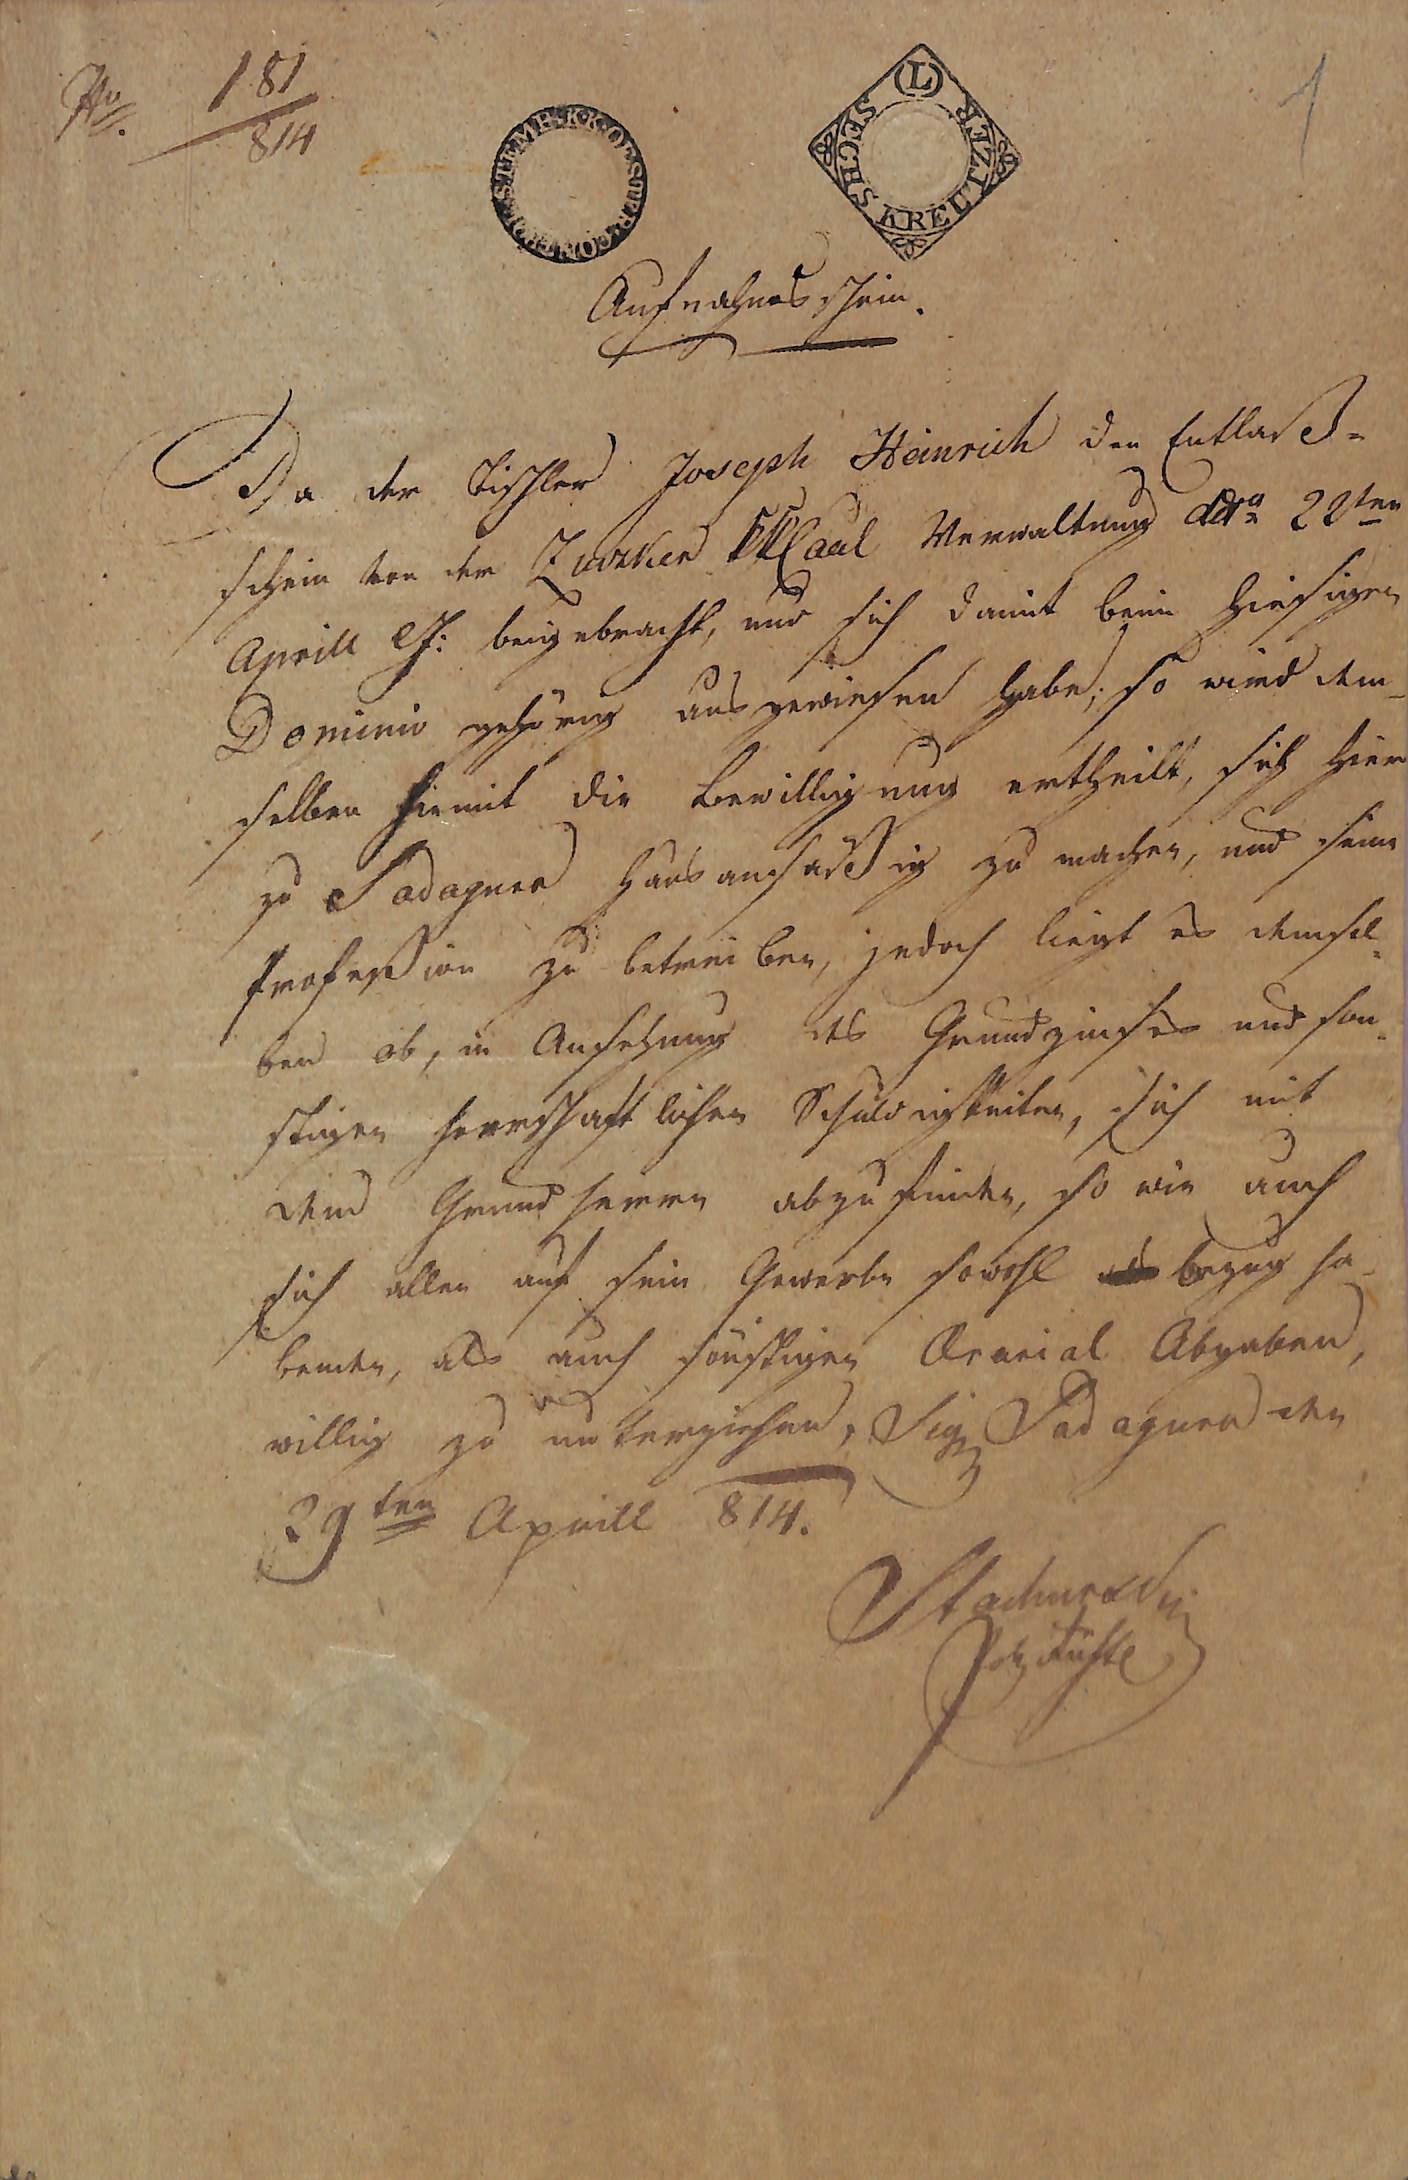 No. 181/814
1
STEMP. K.K. OESTERR.
SECHS KREUTZER (L)
Aufnahms schein.
Da der Tischler Joseph Heinrich den Entlaß-
schein von der Zurker Kaal Verwaltung ddto 22ten
Aprill l.J: beigebracht, und sich damit beim hiesigen
Dominio gehörig ausgewiesen habe; so wird dem-
selben hiemit die Bewilligung ertheilt, sich hier
zu Sadagura Hausansäßig zu machen, und seine
Profeßion zu betreiben, jedoch liegt es demsel-
ben ob, in Ansehung des Grundzinses und son-
stigen herrschaftlichen Schuldigkeiten, sich mit
dem Grundherrn abzufinden, so wie auch
sich allen auf sein Gewerbe sowohl bezug ha-
benden, als auch sonstigen Ærarial Abgaben,
willig zu unterziehen, Sig Sadagura den
29ten Aprill 814.